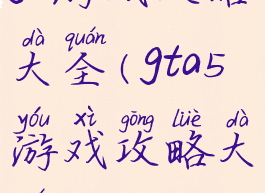 dà quán
大全(gta5
yóu xì gōng lüè dà
游戏攻略大